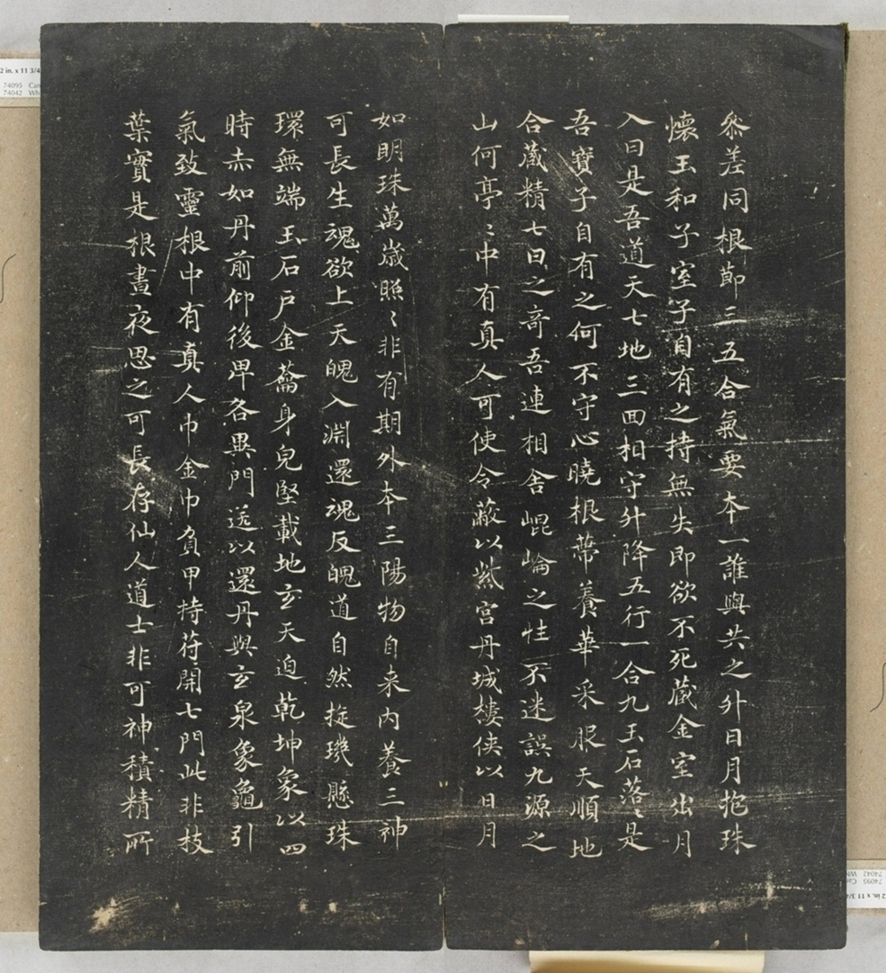 叅差同根節三五合氣要本一誰與共之升日月抱珠
懷玉和子室子自有之持無失即欲不死藏金室出月
入日是吾道天七地三回相守升降五行一合九玉石落〻是
吾寶子自有之何不守心曉根蔕養華采服天順地
合藏精七日之奇吾連相舍崐崘之性不迷誤九源之
山何亭〻中有真人可使令蔽以紫宮丹城樓俠以日月
如明珠萬歲照〻非有期外本三陽物自来內養三神
可長生魂欲上天魄入淵還魂反魄道自然挻璣懸珠
環無端玉石戶金籥身皃堅載地玄天迫乾坤象以四
時赤如丹前仰後卑各異門送以還丹與玄泉象龜引
氣致靈根中有真人巾金巾負甲持符開七門此非枝
葉實是根晝夜思之可長存仙人道士非可神積精所